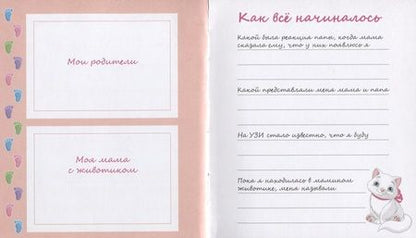 Мои родители
Моя мама
с животиком
Как всё начиналось
Какой была реакция папы, когда мама
сказала ему, что у них появлюсь я
Какой представляли меня мама и папа
На УЗИ стало известно, что я буду
Пока я находилась в мамином
животике, меня называли